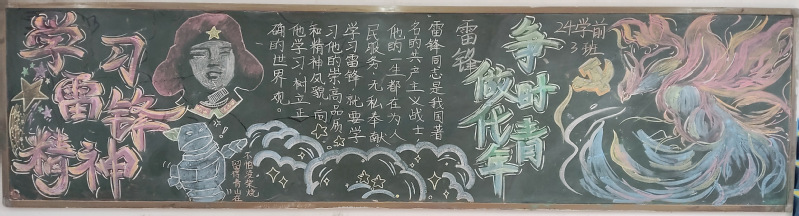 学习
雷锋
精神
雷锋
雷锋同志是我国著
名的共产主义战士
他的一生都在为人
民服务,无私奉献
学习雷锋,就要学
习他的崇高品质
和精神风貌,向
他学习,树立正
确的世界观
留得青山在
不怕没柴烧
争做
时代
青年
24学前
3班